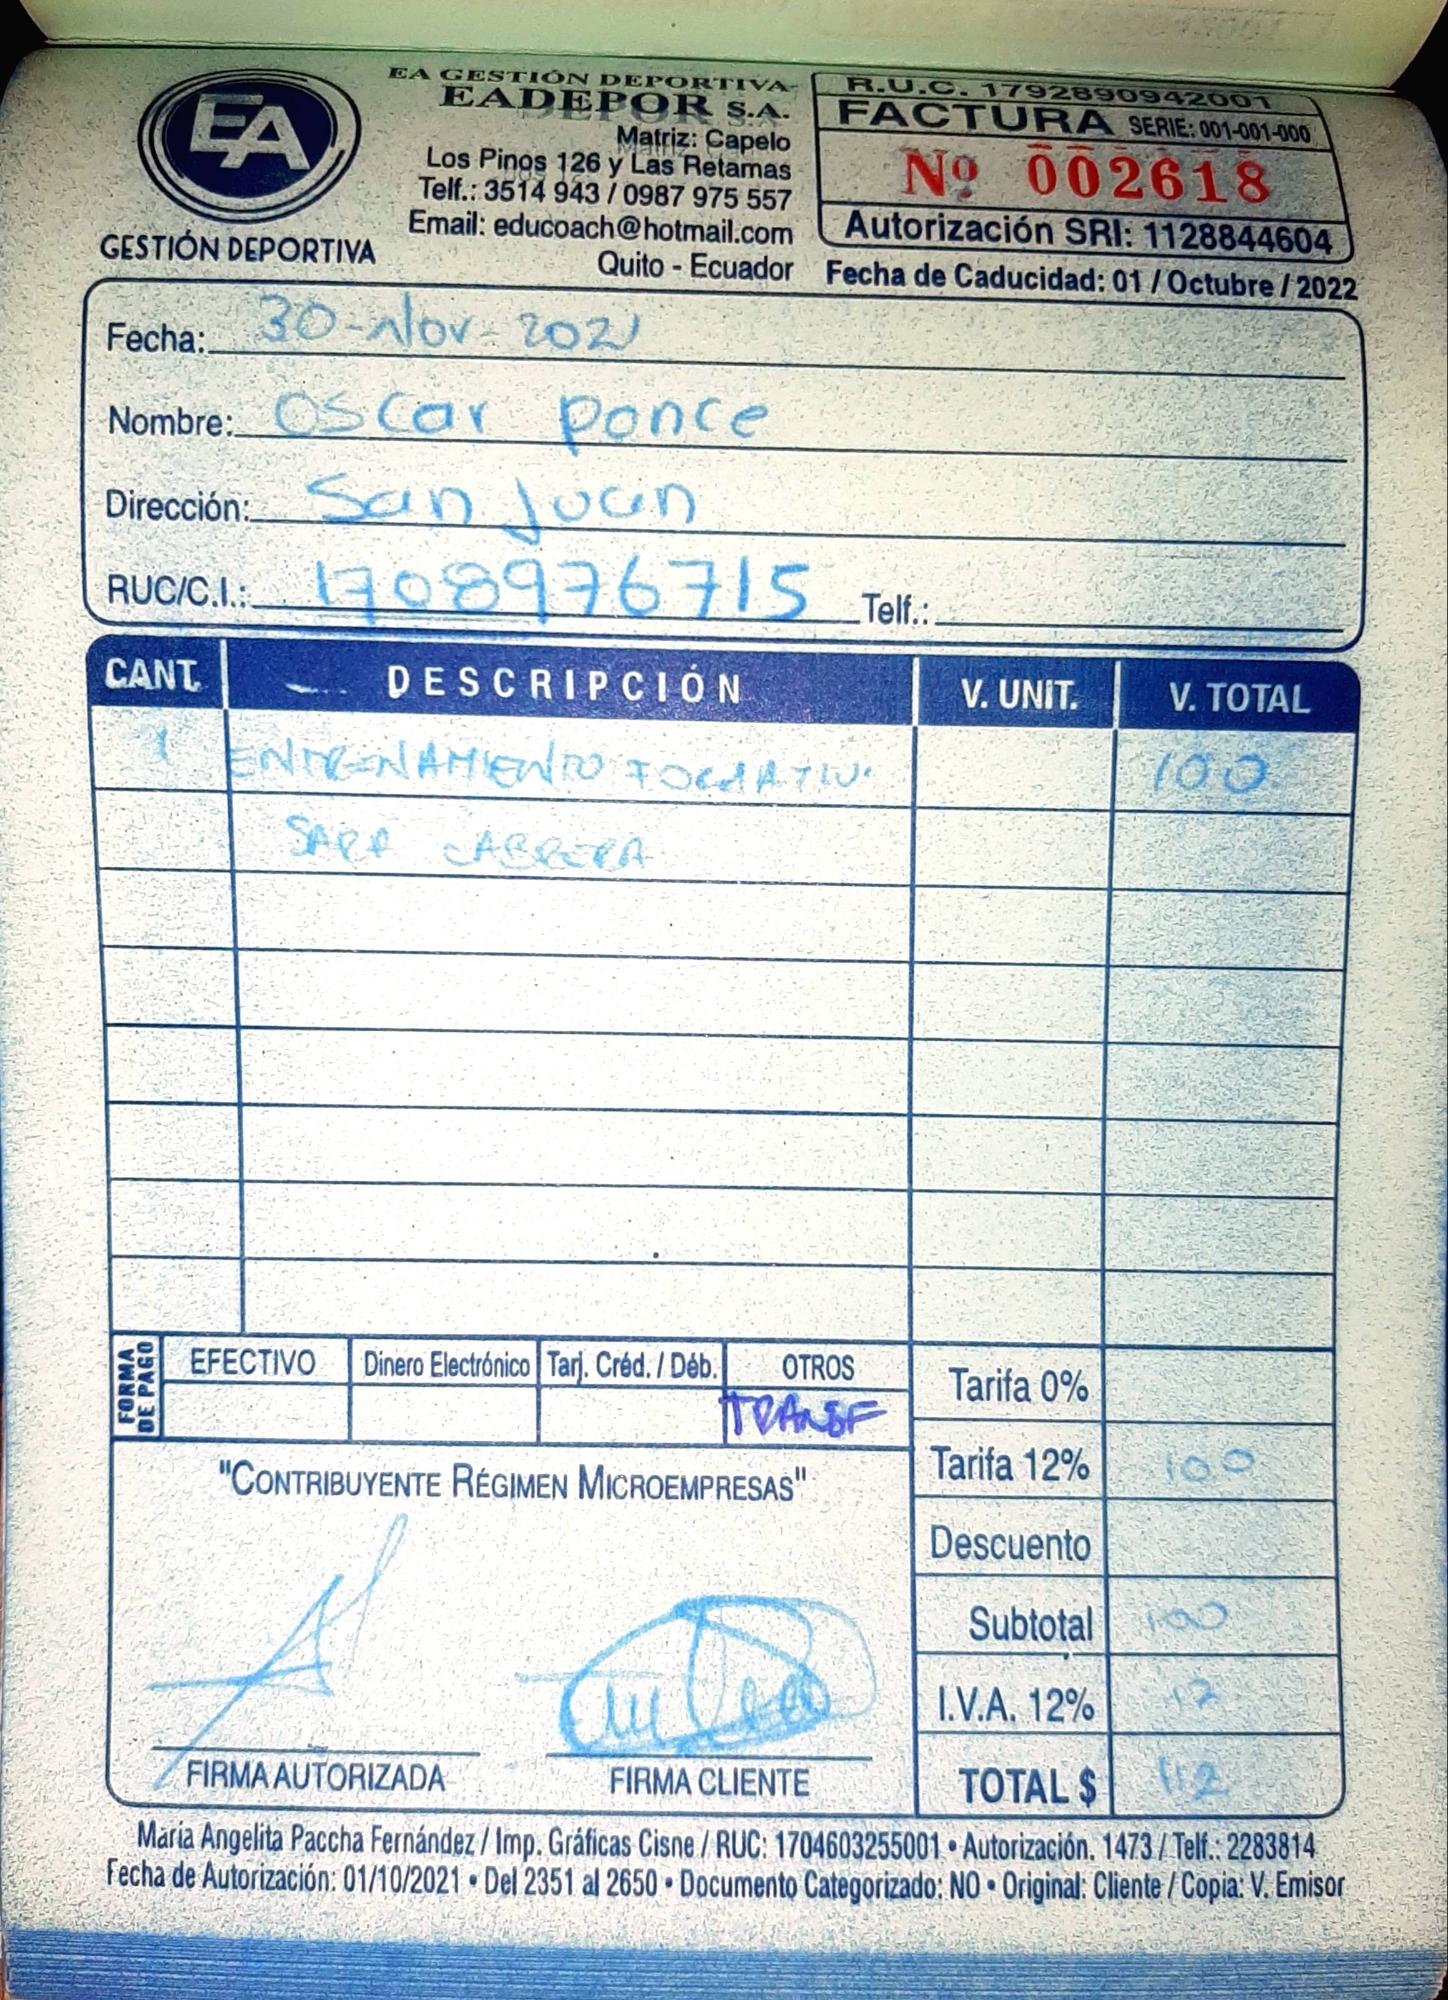 EA
GESTIÓN DEPORTIVA
EA GESTIÓN DEPORTIVA
EADEPOR S.A.
Matriz: Capelo
Los Pinos 126 y Las Retamas
Telf.: 3514 943 / 0987 975 557
Email: educoach@hotmail.com
Quito - Ecuador
R.U.C. 1792890942001
FACTURA SERIE: 001-001-000
Nº 002618
Autorización SRI: 1128844604
Fecha de Caducidad: 01 / Octubre / 2022
Fecha: 30-Nov-2021
Nombre: Oscar Ponce
Dirección: San Juan
RUC/C.I.: 1708976715 Telf.:
CANT. DESCRIPCIÓN V. UNIT. V. TOTAL
1 ENTRENAMIENTO FORMATIVO 100
SARA CABRERA
FORMA DE PAGO
EFECTIVO Dinero Electrónico Tarj. Créd. / Déb. OTROS
TRANSF
Tarifa 0%
Tarifa 12% 100
Descuento
Subtotal 100
I.V.A. 12% 12
TOTAL $ 112
"CONTRIBUYENTE RÉGIMEN MICROEMPRESAS"
FIRMA AUTORIZADA FIRMA CLIENTE
María Angelita Paccha Fernández / Imp. Gráficas Cisne / RUC: 1704603255001 • Autorización. 1473 / Telf.: 2283814
Fecha de Autorización: 01/10/2021 • Del 2351 al 2650 • Documento Categorizado: NO • Original: Cliente / Copia: V. Emisor